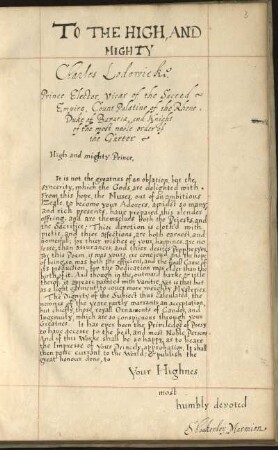 TO THE HIGH, AND
MIGHTY
Charles Lodowick
Prince Elector, Vicar of the Sacred
Empire, Count Palatine of the Rhene
Duke of Bavaria, and Knight
of the most noble order of
the Garter
High and mighty Prince,
It is not the greatnes of an oblation, but the
syncerity, which the Gods are delighted with.
From this hope, the Muses, out of an ambitious
Zeale to become your Adorers, amidst so many
and rich presents, have prepared this slender
offring, and are themselves both the
and the Sacrifice: Their devotion is
pietie, and theire affections, are both earnest, and
for their wishes of your happines, are no
lesse, than assurances, and their
By this Poem, it was
of bringing, was both the efficient, and the finall Cause of
its production, for the Dedication was elder than the
birth of it. And though, in the outward barke or title
thereof, it appeares painted with Vanitie, yet is that but
as a light ornament to cover more weighty Misteries.
The Dignity of the Subject thus calculated, the
numnes of the verse partly warrants an acceptation,
but chiefly, those royall Ornaments of Candor, and
Ingenuity, which are so conspicuous through your
Greatnes. It has ever been the Priviledge of Poesy
to have accesse to the best, and most Noble Persons
and if this Worke shall be so happy, as to beare
the Impresse of your Princely approbation, It shall
then passe currant to the World, & publish the
great honour done, to
Your Highnes
most
humbly devoted
Shakerley Marmion